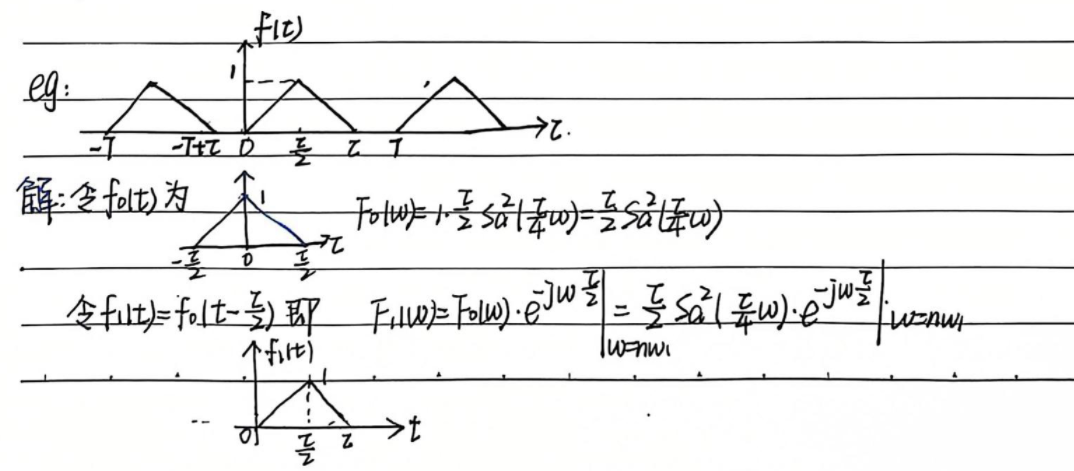 f(t)
eg:
1
-T -T+τ 0 τ/2 τ T t.
解:令f₀(t)为
1
-τ/2 0 τ/2 t
F₀(ω)=1·τ/2 Sa²(τ/4 ω)=τ/2 Sa²(τ/4 ω)
令f₁(t)=f₀(t-τ/2) 即 F₁(ω)=F₀(ω)·e^{-jω τ/2}|ω=nω₁ = τ/2 Sa²(τ/4 ω)·e^{-jω τ/2}|ω=nω₁
f₁(t)
1
0 τ/2 τ t